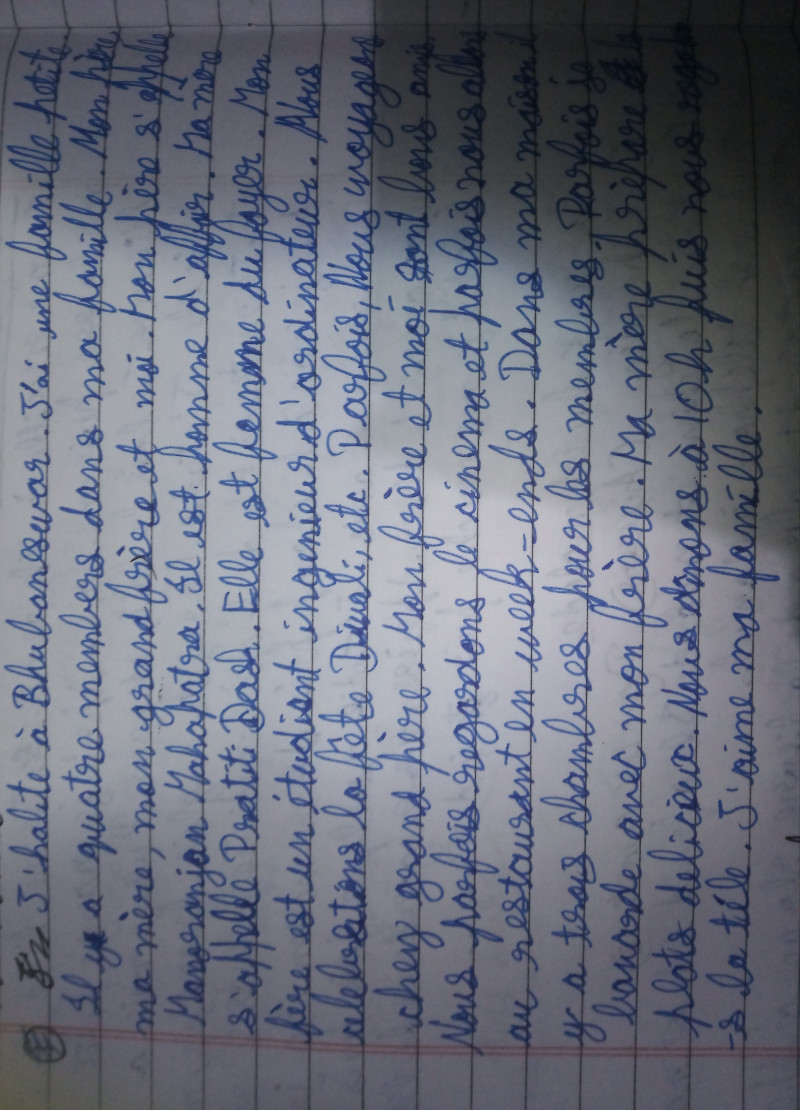 J'habite à Bhubaneswar. J'ai une famille petite.
Il y a quatre members dans ma famille. Mon père
ma mère, mon grand frère et moi. Mon père s'appelle
Manoranjan Mahapatra. Il est homme d'affair. Ma mère
s'appelle Pratiti Dash. Elle est femme du foyer. Mon
frère est un étudient ingenieur d'ordinateur. Nous
celebrations la fête Diwali, etc. Parfois, Nous voyages
chez grand père. Mon frère et moi sont bons amis
Nous parfois regardons le cinema et parfois nous allons
au restaurant en week-ends. Dans ma maison il
y a trois chambres pour les membres. Parfois je
bavarde avec mon frère. Ma mère prépare
plats delicieux. Nous dinons à 10h puis nous
-s la télé. J'aime ma famille.